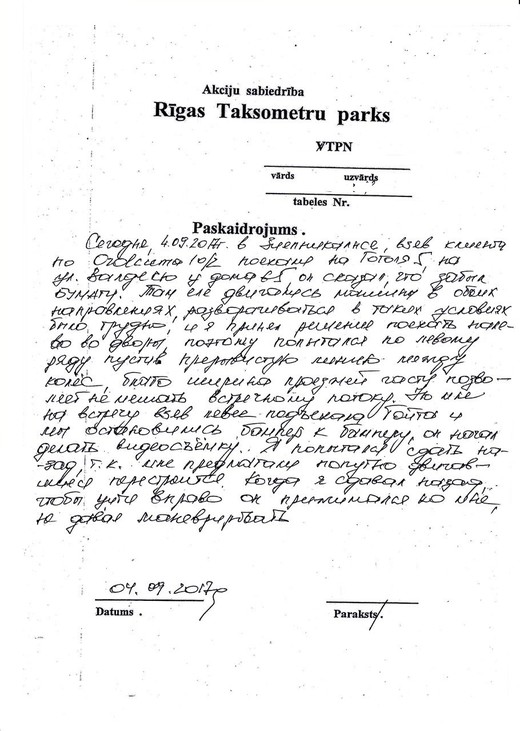 Akciju sabiedrība
Rīgas Taksometru parks
VTPN
vārds uzvārds
tabeles Nr.
Paskaidrojums .
Сегодня, 4.09.2017г. в взев клиента
по 10/2 поехали на Гоголя 5, на
ул. у дома он сказал, что забыл
бумагу. Там где двигались машины в обеих
направлениях, разворачиваться в таких условиях
было трудно, и я принел решение поехать нале-
во во дворы, поэтому попытался по левому
ряду пустив прерывистую линию между
колёс, благо ширина проезжей части позво-
ляет не мешать встречному потоку. Но мне
на встречу взев левее подъехала Тойта и
мы остановились бампер к бамперу, он начал
делать видеосъёмку. Я попытался сдать на-
зад, т.к. мне предлагали попутно двигав-
шиеся перестроится. Когда я сдавал назад,
чтоб уйти вправо он прижимался ко мне,
не давая маневрировать
04.09.2017г
Datums . Paraksts .